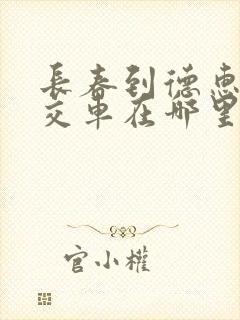 長春到德惠
交車在哪里
官小權